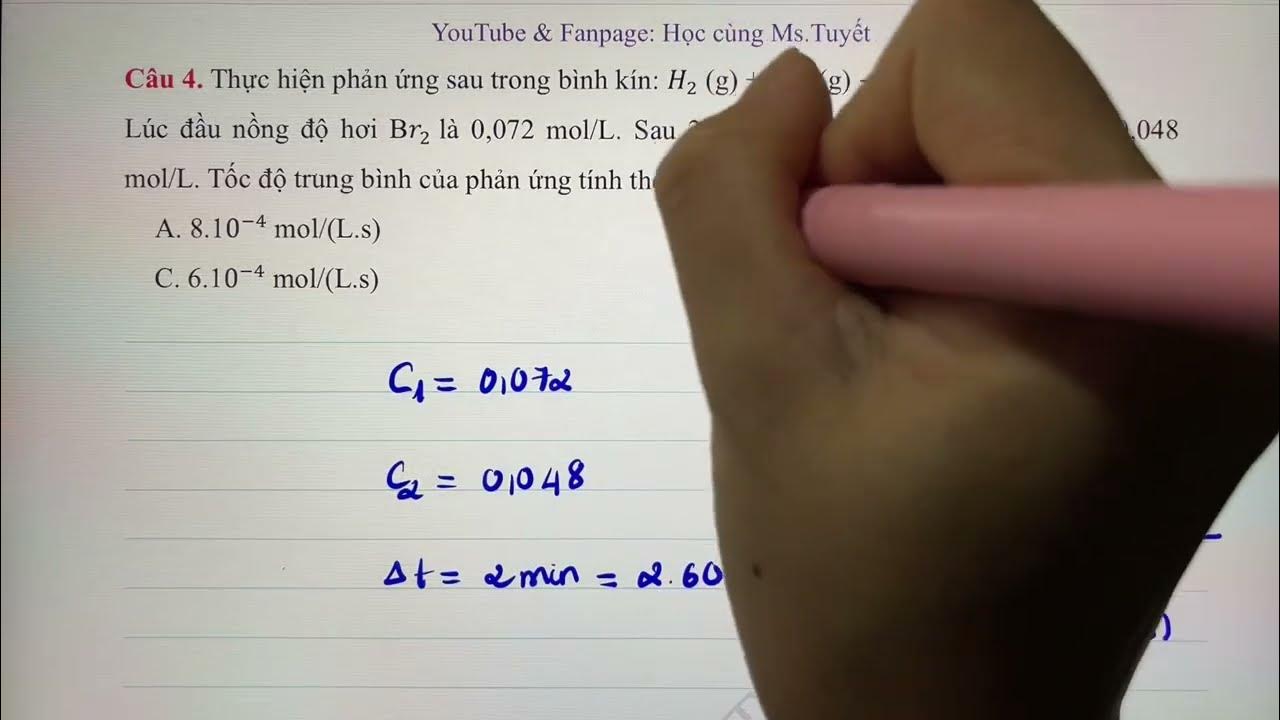 YouTube & Fanpage: Học cùng Ms.Tuyết
Câu 4. Thực hiện phản ứng sau trong bình kín: H₂ (g) + (g)
Lúc đầu nồng độ hơi Br₂ là 0,072 mol/L. Sau ,048
mol/L. Tốc độ trung bình của phản ứng tính
A. 8.10⁻⁴ mol/(L.s)
C. 6.10⁻⁴ mol/(L.s)
C₁ = 0,072
C₂ = 0,048
Δt = 2 min = 2.60